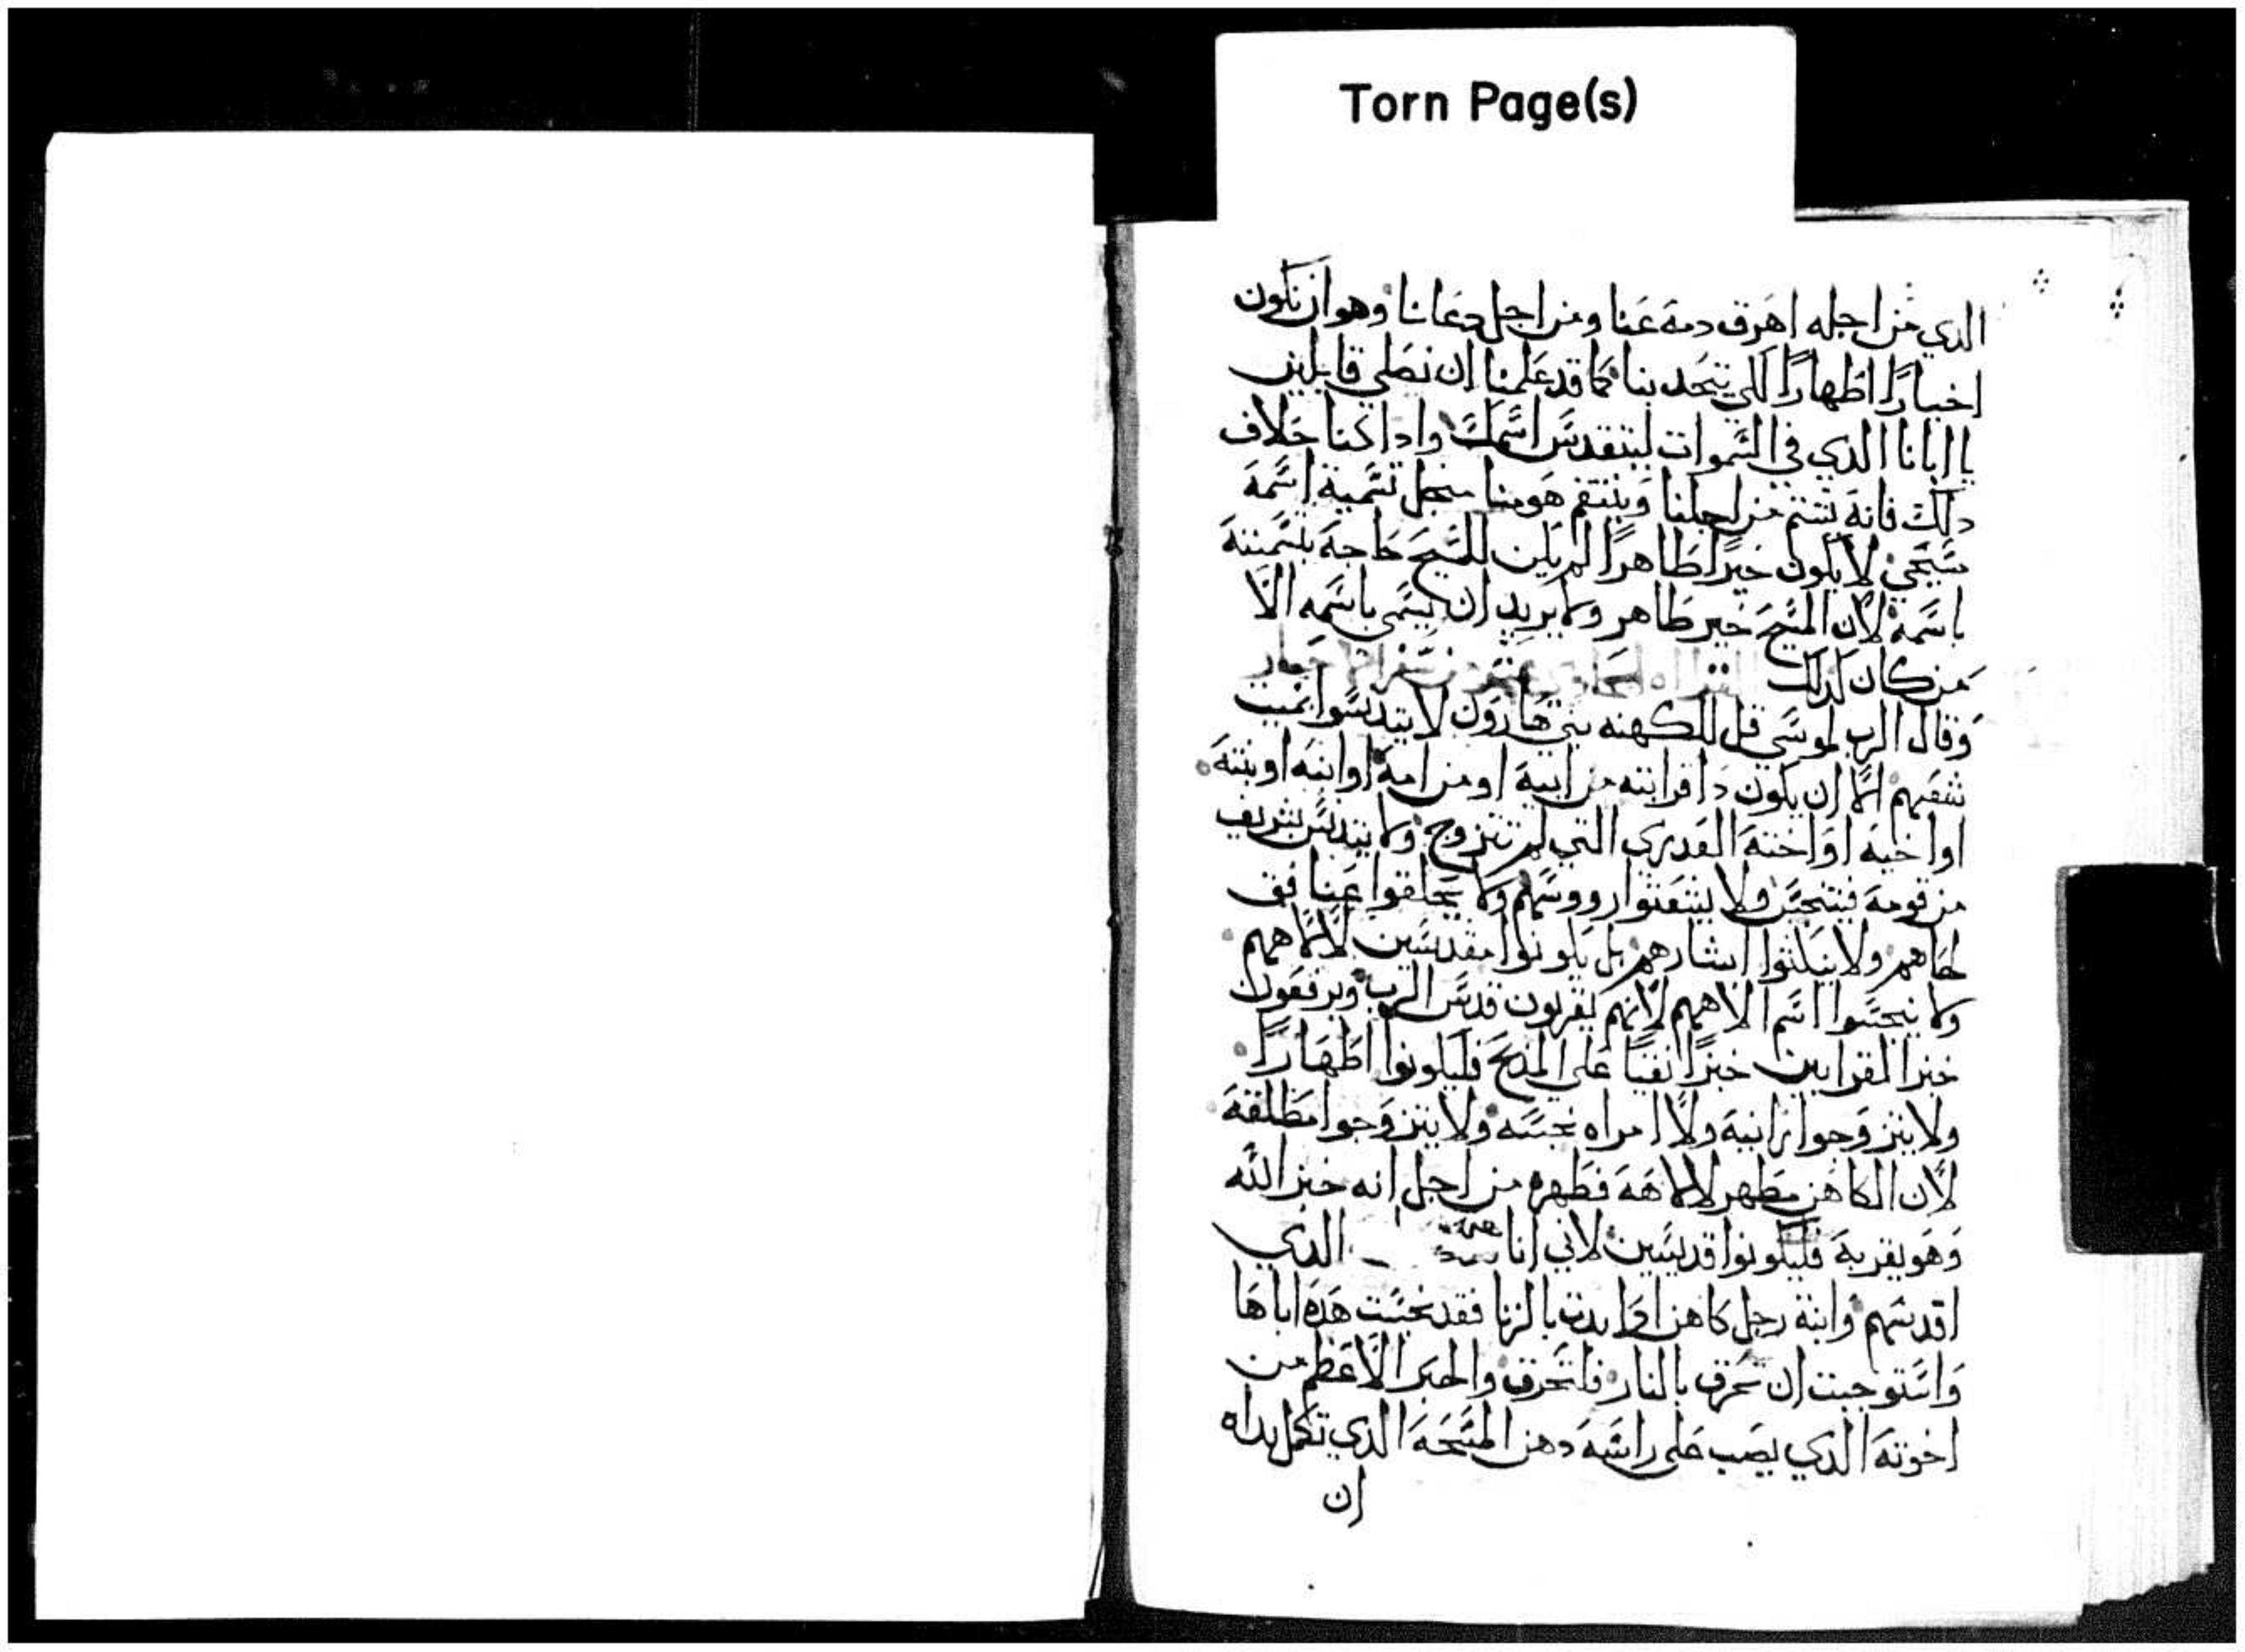 Torn Page(s)
الدي من اجله اهرق دمه عنا ومن اجل دعانا وهو ان نكون
اخيارًا اطهارًا لكي يتحد بنا كما قد علمنا ان نصلي قايلين
يا ابانا الدي في السموات ليتقدس اسمك وادا كنا خلاف
دلك فانه يشتم من اجلنا وينتقم هو منا منجل تسمية اسمه
مسيحي لا يكون خيرًا طاهرًا لم يكن للمسيح حاجه بتسميته
باسمه لان المسيح خير طاهر ولا يريد ان يسمى باسمه الا
من كان كدلك
وقال الرب لموسى قل للكهنه بني هارون لا يتدنسوا بميت
شعبهم الا ان يكون دا قرابته من ابيه او من امه او ابنه او بنته
او اخيه او اخته العدري التي لم تتزوج ولا يتدنس بشريف
من قومه فيتنجس ولا ينتفتوا رووسهم ولا يحلقوا عنافق
لحاهم ولا يبكتوا ابشارهم بل يكونوا مقدسين لالاههم
ولا ينجسوا اسم الاههم لانهم يقربون قدس الرب ويرفعون
خبز القرابين خبزًا نقيًا على المدبح فليكونوا اطهارًا
ولا يتزوجوا زانيه ولا امراه نجسه ولا يتزوجوا مطلقه
لان الكاهن مطهر لالاهه فطهره من اجل انه خبز الله
وهو يقربه فليكونوا قديسين لاني انا الدي
اقدسهم وابنة رجل كاهن ادا بدت بالزنا فقد نجست هده اباها
واستوجبت ان تحرق بالنار فلتحرق والحبر الاعظم من
اخوته الدي يصب على راسه دهن المسحه الدي تكمل يداه
ان